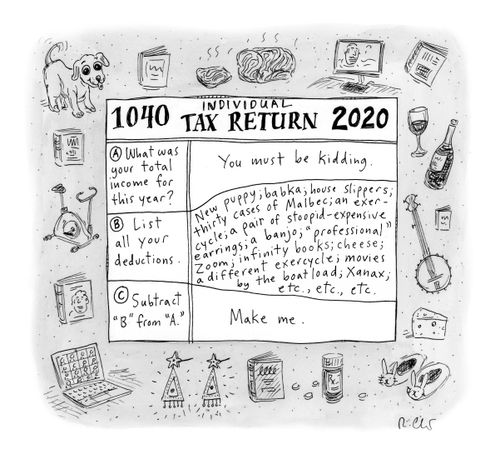 1040 INDIVIDUAL TAX RETURN 2020
Ⓐ What was
your total
income for
this year?
You must be kidding.
Ⓑ List
all your
deductions.
New puppy; babka; house slippers;
thirty cases of Malbec; an exer-
cycle; a pair of stoopid-expensive
earrings; a banjo; "professional"
Zoom; infinity books; cheese;
a different exercycle; movies
by the boatload; Xanax;
etc., etc., etc.
Ⓒ Subtract
"B" from "A."
Make me.